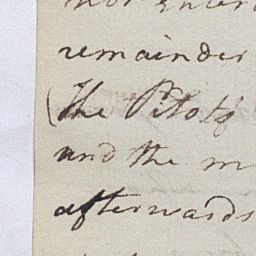 nor enter
remainder
(The Pilots
and the m
afterwards